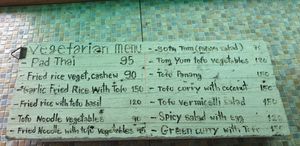 Vegetarian menu
- Pad Thai 95
- Fried rice veget, cashew 90
- Garlic Fried Rice With Tofu 150
- Fried rice with tofu basil 120
- Tofu Noodle vegetables 90
- Fried Noodle with tofu vegetables 95
- Som Tum (papaya salad) 95
- Tom Yum Tofu vegetables 120
- Tofu Panang 150
- Tofu curry with coconut 150
- Tofu vermicelli Salad 150
- Spicy salad with egg 120
- Green curry with Tofu 150